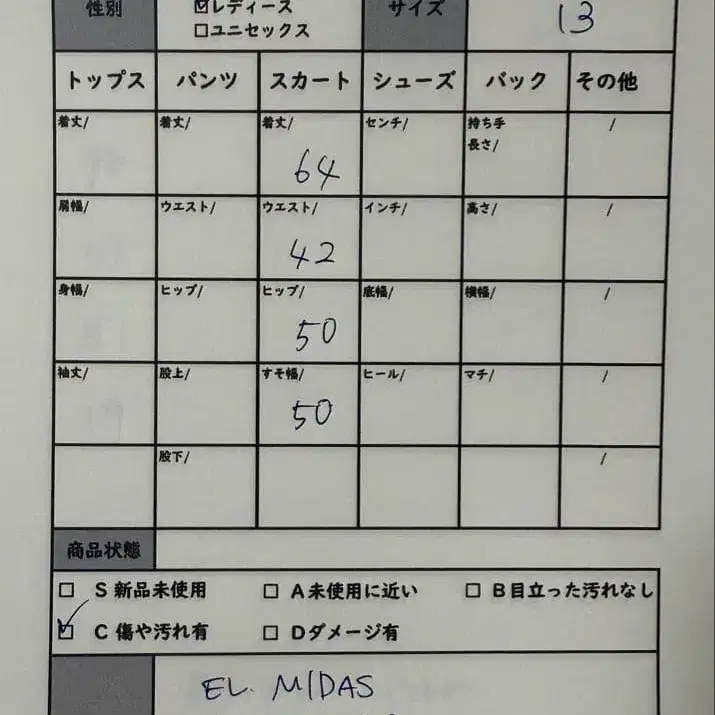 性別 ☑レディース サイズ 13
□ユニセックス
トップス パンツ スカート シューズ バック その他
着丈/ 着丈/ 着丈/ センチ/ 持ち手 /
長さ/
64
肩幅/ ウエスト/ ウエスト/ インチ/ 高さ/ /
42
身幅/ ヒップ/ ヒップ/ 底幅/ 横幅/ /
50
袖丈/ 股上/ すそ幅/ ヒール/ マチ/ /
50
股下/ /
商品状態
□ S 新品未使用 □ A未使用に近い □ B目立った汚れなし
☑ C 傷や汚れ有 □ Dダメージ有
EL. MIDAS